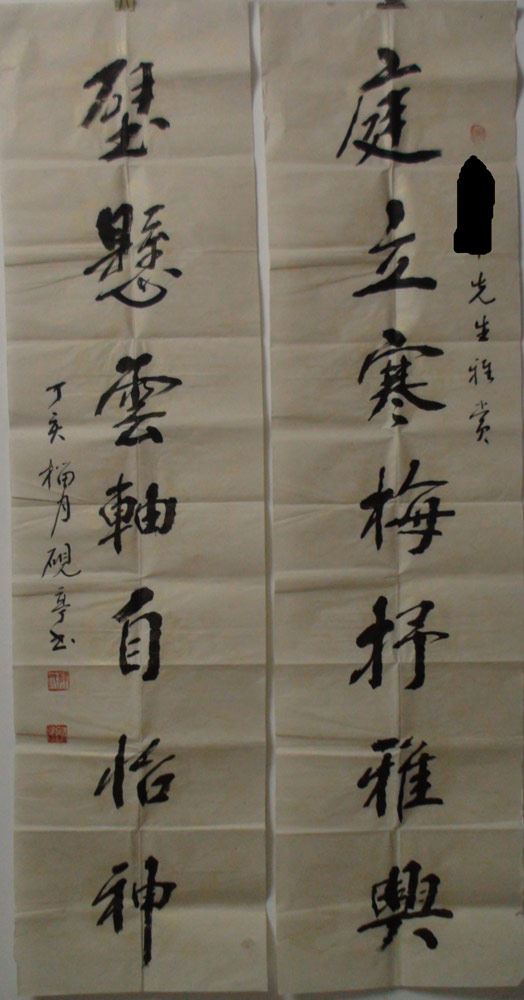 先生雅赏
庭立寒梅抒雅興
壁懸雲軸自怡神
丁亥榴月硯亭书